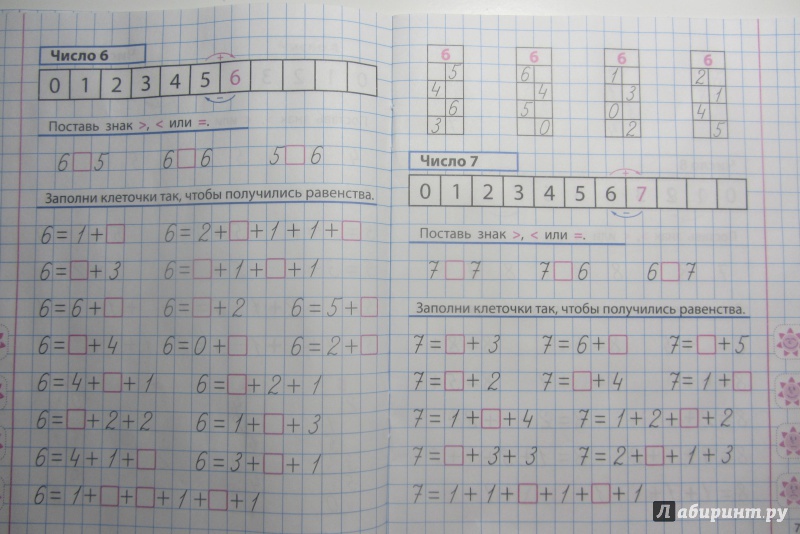 Число 6
0 1 2 3 4 5 6
Поставь знак >, < или =.
6□5 6□6 5□6
Заполни клеточки так, чтобы получились равенства.
6=1+□ 6=2+□+1+1+□
6=□+3 6=□+1+□+1
6=6+□ 6=□+2 6=5+□
6=□+4 6=0+□ 6=2+□
6=4+□+1 6=□+2+1
6=□+2+2 6=1+□+3
6=4+1+□ 6=3+□+1
6=1+□+□+1+□+1
6 6 6 6
5 6 1 2
4 4 3 1
6 5 0 4
3 0 2 5
Число 7
0 1 2 3 4 5 6 7
Поставь знак >, < или =.
7□7 7□6 6□7
Заполни клеточки так, чтобы получились равенства.
7=□+3 7=6+□ 7=□+5
7=□+2 7=□+4 7=1+□
7=1+□+4 7=1+2+□+2
7=□+3+3 7=2+□+1+3
7=1+1+□+1+□+1
Лабиринт.ру
7